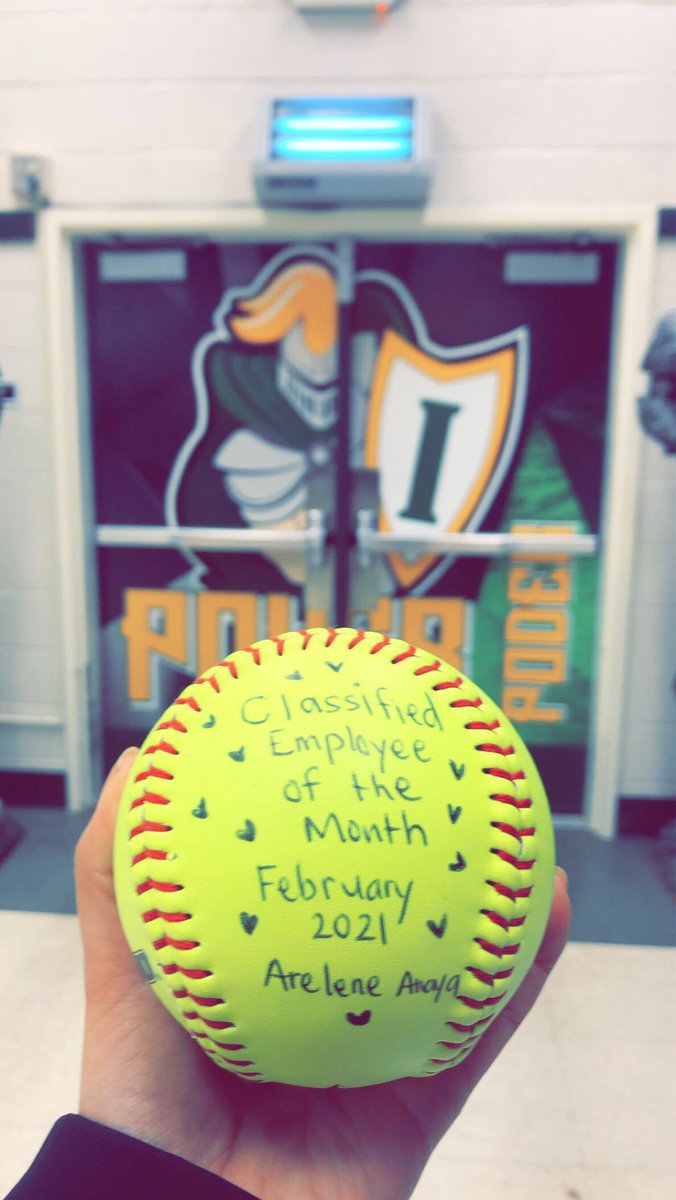 I
PODER
POWER
Classified
Employee
of the
Month
February
2021
Arelene Anaya